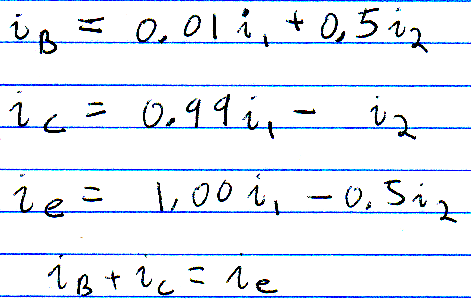 i_B = 0.01 i_1 + 0.5 i_2
i_C = 0.99 i_1 - i_2
i_e = 1.00 i_1 - 0.5 i_2
i_B + i_C = i_e